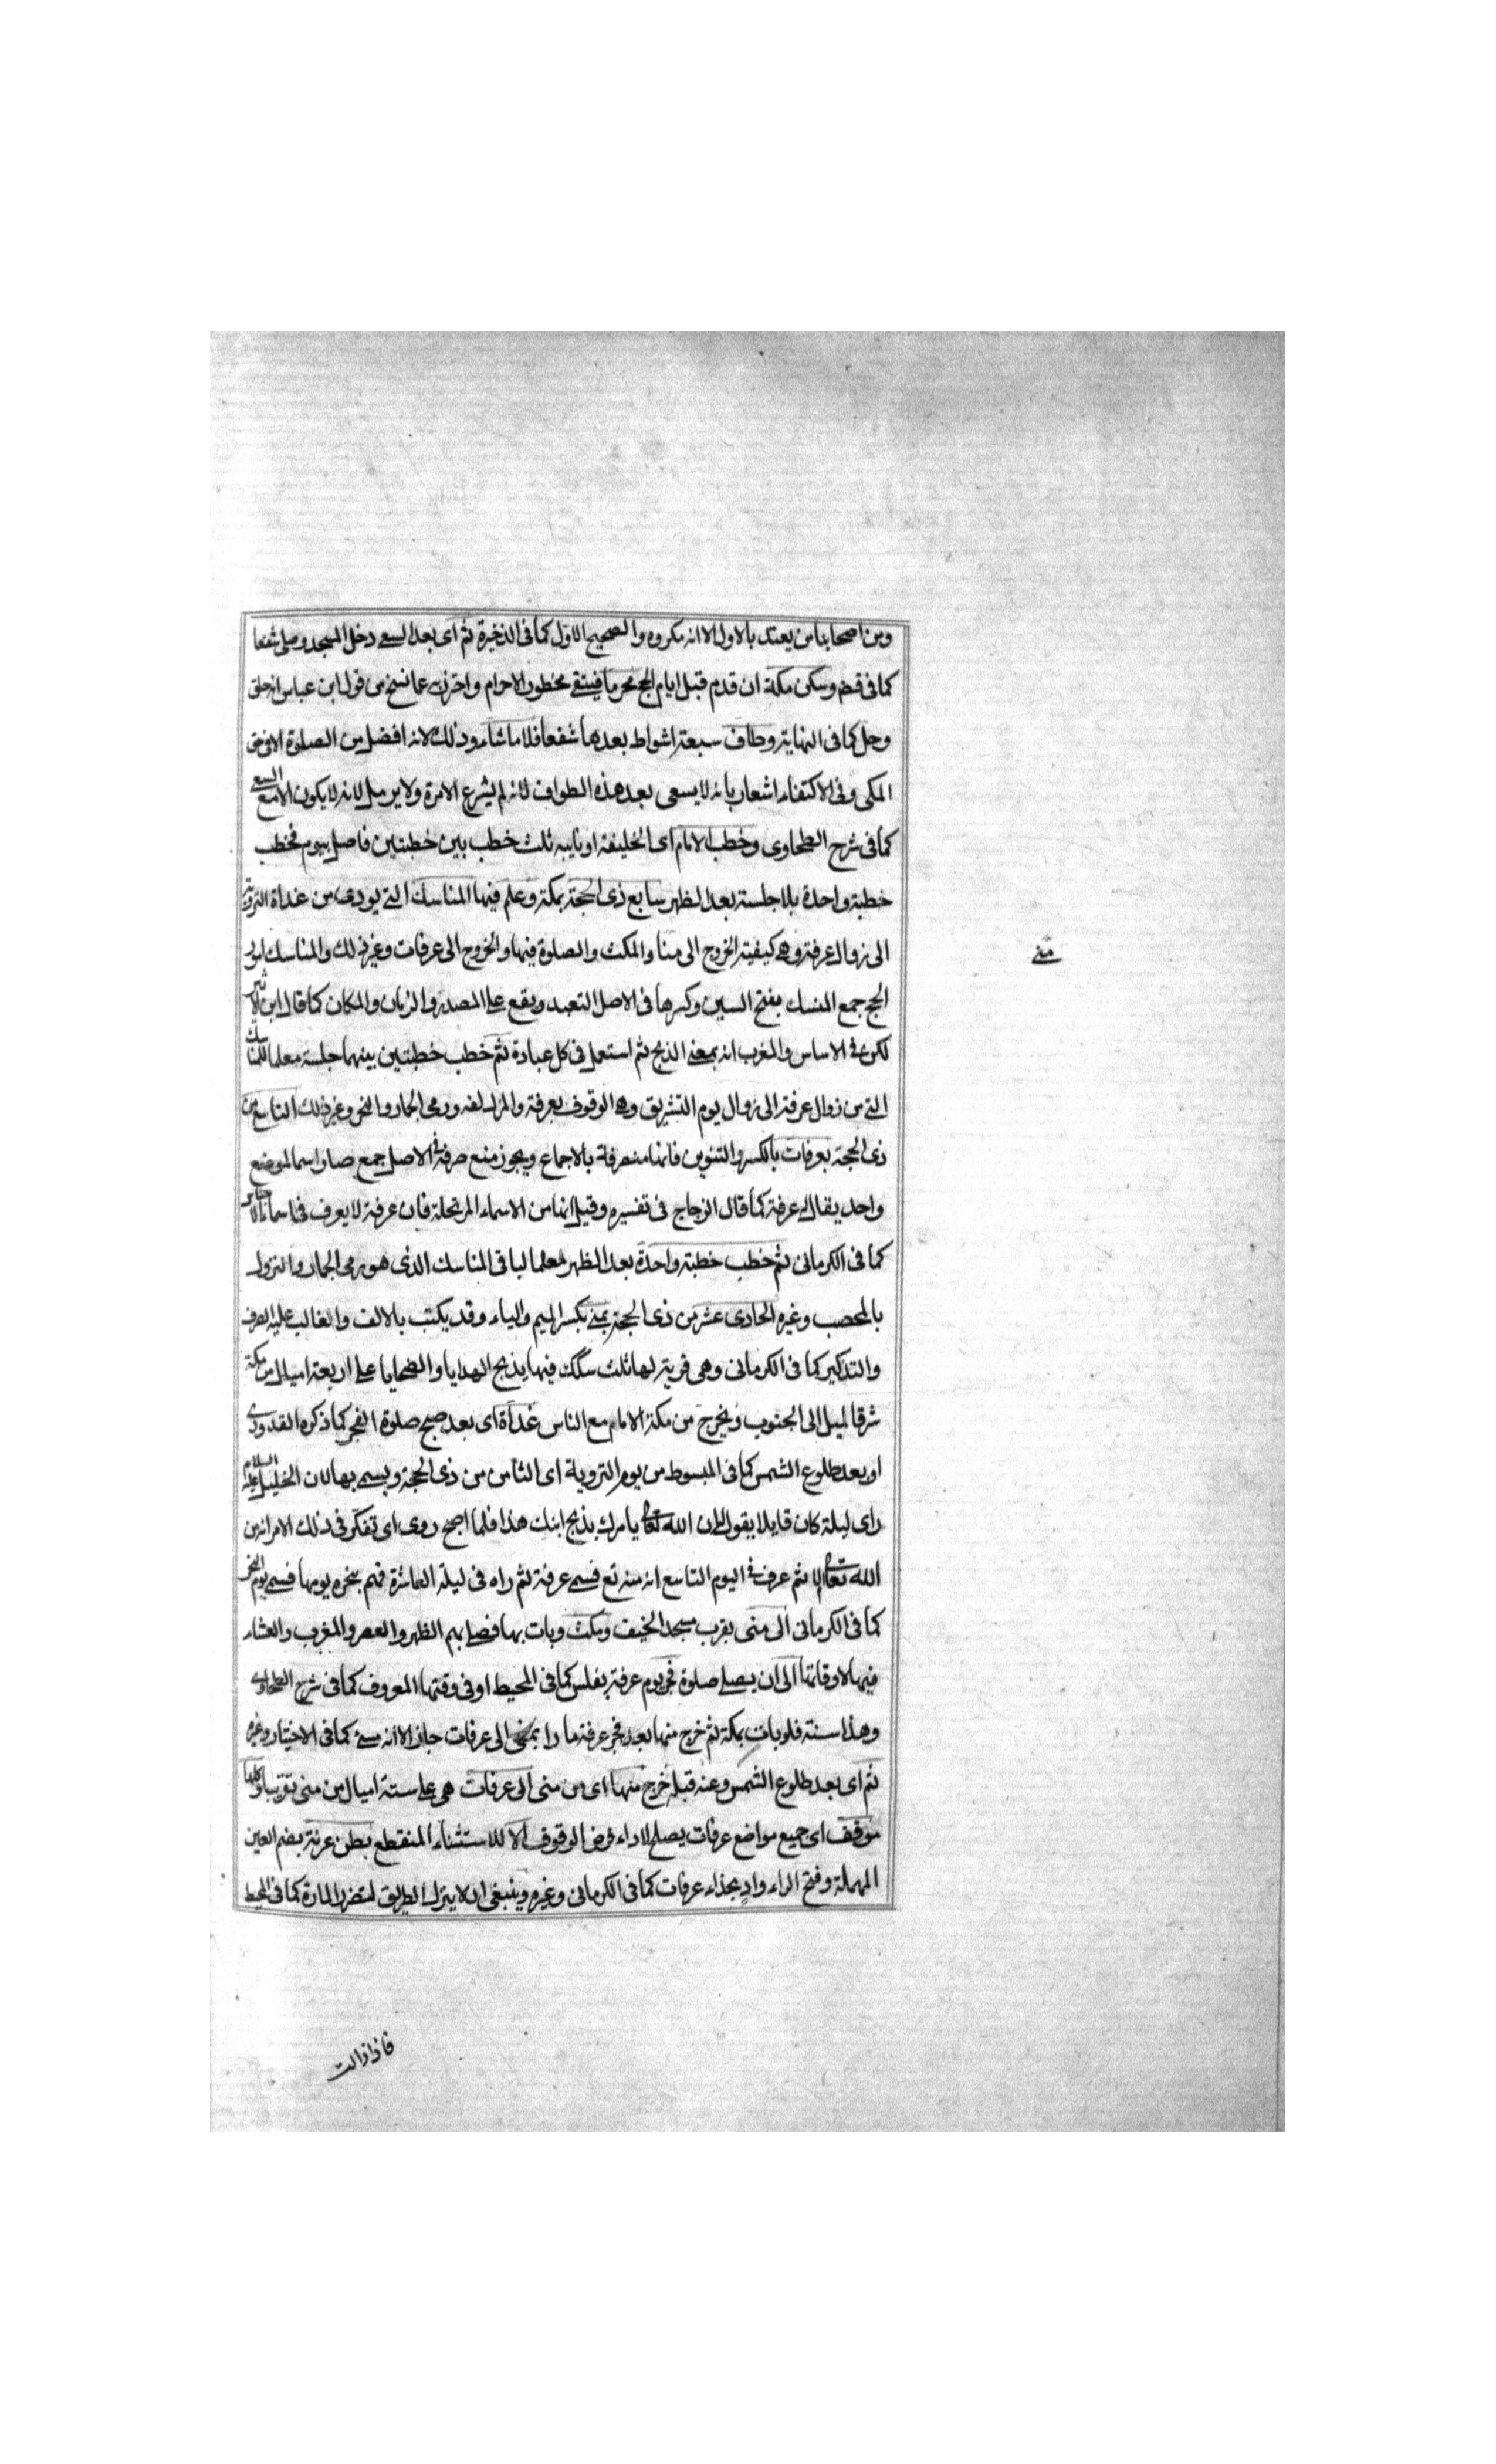 ومن اصحابنا من يعتد بالاول الا انه مكروه والصحيح الاول كما فى الذخيرة ثم اى بعد السعى دخل المسجد وصلى شفعا
كما فى قض وسكن مكة ان قدم قبل ايام الحج محرما فيتقى محظور الاحرام واحترز به عما نسخ من قول ابن عباس انه حلق
وحل كما فى النهاية وطاف سبعة اشواط بعدها شفعا فلا ما شاء وذلك لانه افضل من الصلوة الافرضى
المكى وفى الاكتفاء اشعار بانه لا يسعى بعد هذه الطواف لانه لم يشرع الا مرة ولا يرمل لانه لا يكون الا مع السعى
كما فى شرح الطحاوى وخطب الامام اى الخليفة او نايبه ثلث خطب بين خطبتين فاصل بيوم فخطب
خطبة واحدة بلا جلسة بعد الظهر سابع ذى الحجة بمكة وعلم فيها المناسك التى يودى من غداة التروية
الى زوال عرفة وهى كيفية الخروج الى منا والمكث والصلوة فيها والخروج الى عرفات وغير ذلك والمناسك امور
منى
الحج جمع المنسك بفتح السين وكسرها فى الاصل التعبد ويقع على المصدر والزمان والمكان كما قال ابن الاثير
لكن فى الاساس والمغرب انه بمعنى الذبح ثم استعمل فى كل عبادة ثم خطب خطبتين بينهما جلسة معلما للمناسك
التى من زوال عرفة الى زوال يوم التشريق وهى الوقوف بعرفة والمزدلفة ورمى الجمار والنحر وغير ذلك التاسع من
ذى الحجة بعرفات بالكسر والتنوين فانها منصرفة بالاجماع ويجوز منع صرفه فى الاصل جمع صار اسما لموضع
واحد يقال له عرفة كما قال الزجاج فى تفسيره وقيل انها من الاسماء المرتجلة فان عرفة لا يعرف فى اسماء الاجناس
كما فى الكرمانى ثم خطب خطبة واحدة بعد الظهر معلما لباقى المناسك الذى هو رمى الجمار والنزول
بالمحصب وغيره الحادى عشر من ذى الحجة بمنى بكسر الميم والياء وقد يكتب بالالف والغالب عليه الصرف
والتذكير كما فى الكرمانى وهى قرية لها ثلث سكك فيها يذبح الهدايا والضحايا على اربعة اميال من مكة
شرقا لميل الى الجنوب ويخرج من مكة الامام مع الناس غداة اى بعد صبح صلوة الفجر كما ذكره القدورى
او بعد طلوع الشمس كما فى المبسوط من يوم التروية اى الثامن من ذى الحجة ويسمى بها لان الخليل عليه السلام
راى ليلة كان قايلا يقول له ان الله تعالى يامرك بذبح ابنك هذا فلما اصبح روى اى تفكر فى ذلك الامر انه من
الله تعالى ام لا ثم عرف فى اليوم التاسع انه منه تع فسمى عرفة ثم راه فى ليلة العاشرة فهم بنحره يومها فسمى يوم النحر
كما فى الكرمانى الى منى بقرب مسجد الخيف ومكث وبات بها فصلى بهم الظهر والعصر والمغرب والعشاء
فيها لاوقاتها الى ان يصلى صلوة فجر يوم عرفة بغلس كما فى المحيط او فى وقتها المعروف كما فى شرح الطحاوى
وهذا سنة فلو بات بمكة ثم خرج منها بعد فجر عرفة مارا بمنى الى عرفات جاز الا انه مسئ كما فى الاختيار وغيره
ثم اى بعد طلوع الشمس وعنه قبله خرج منها اى من منى الى عرفات هى على ستة اميال من منى تقريبا وكلها
موقف اى جميع مواضع عرفات يصلح لاداء فرض الوقوف الا للاستثناء المنقطع بطن عرنة بضم العين
المهملة وفتح الراء واد بحذاء عرفات كما فى الكرمانى وغيره وينبغى ان لا ينزل الطريق لتضرر المارة كما فى المحيط
فاذا زالت